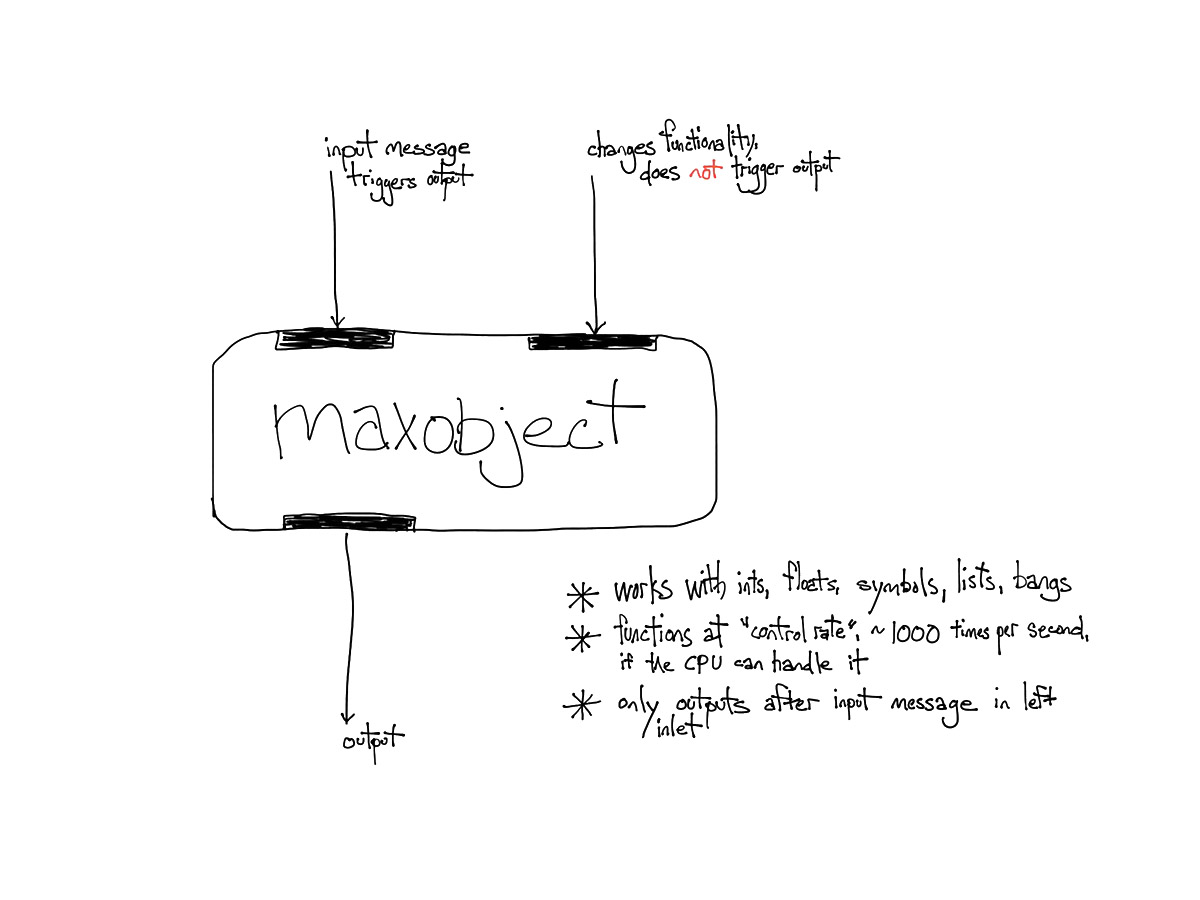 input message
triggers output
changes functionality.
does not trigger output
maxobject
output
* works with ints, floats, symbols, lists, bangs
* functions at "control rate", ~1000 times per second,
if the CPU can handle it
* only outputs after input message in left
inlet